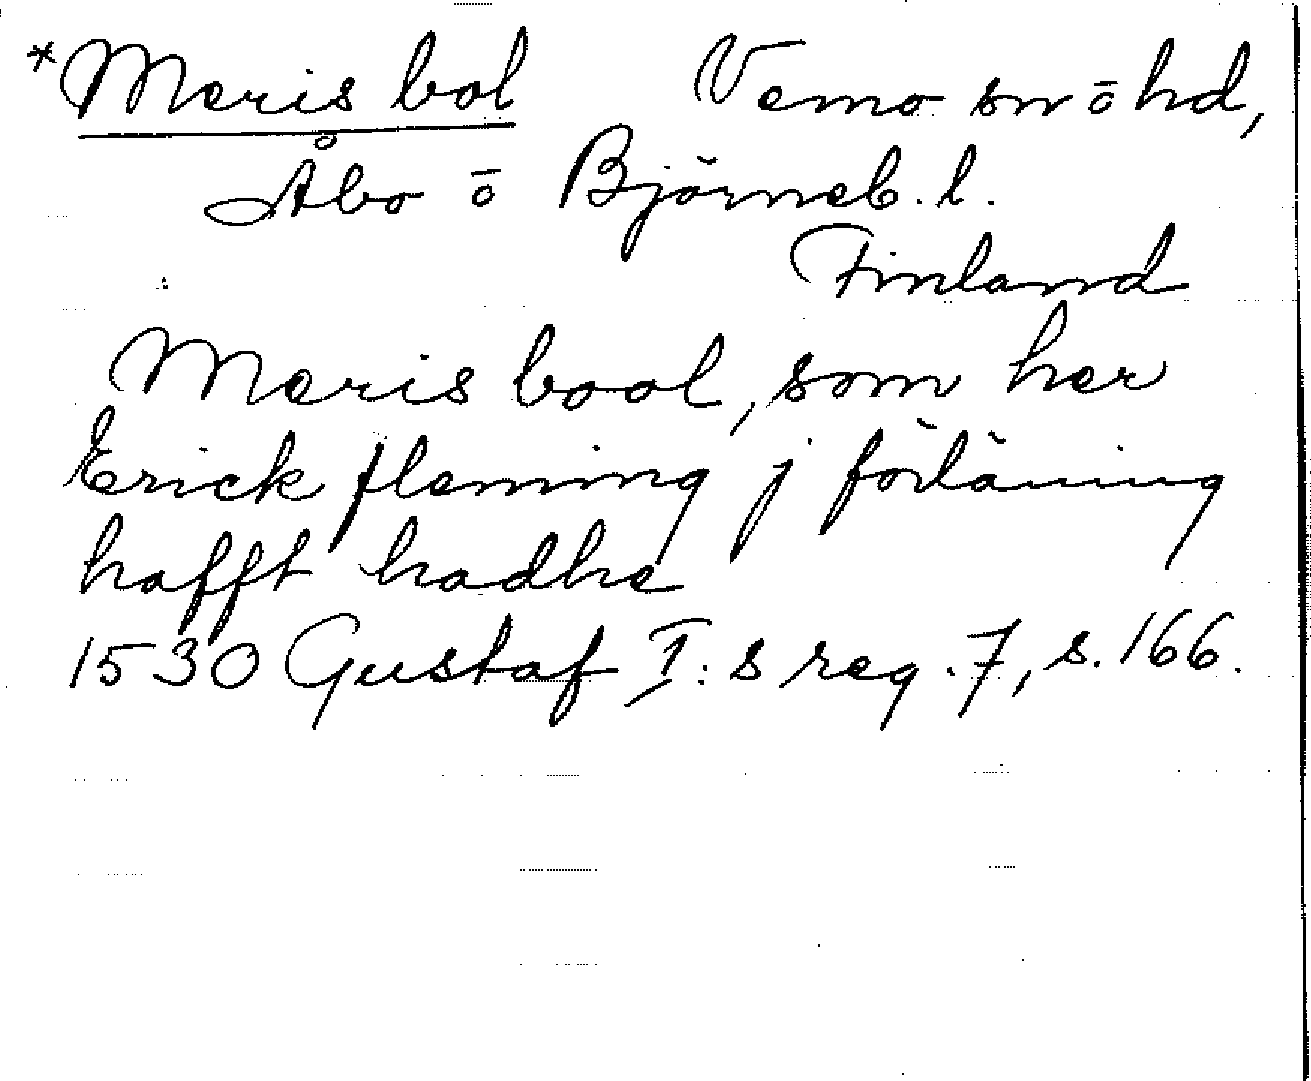 *Meris bol Vemo sn ō hd,
Åbo ō Björneb. l.
Finland
Meris bool, som her
Erick fleming j förläning
hafft hadhe
1530 Gustaf I:s reg. 7, s. 166.